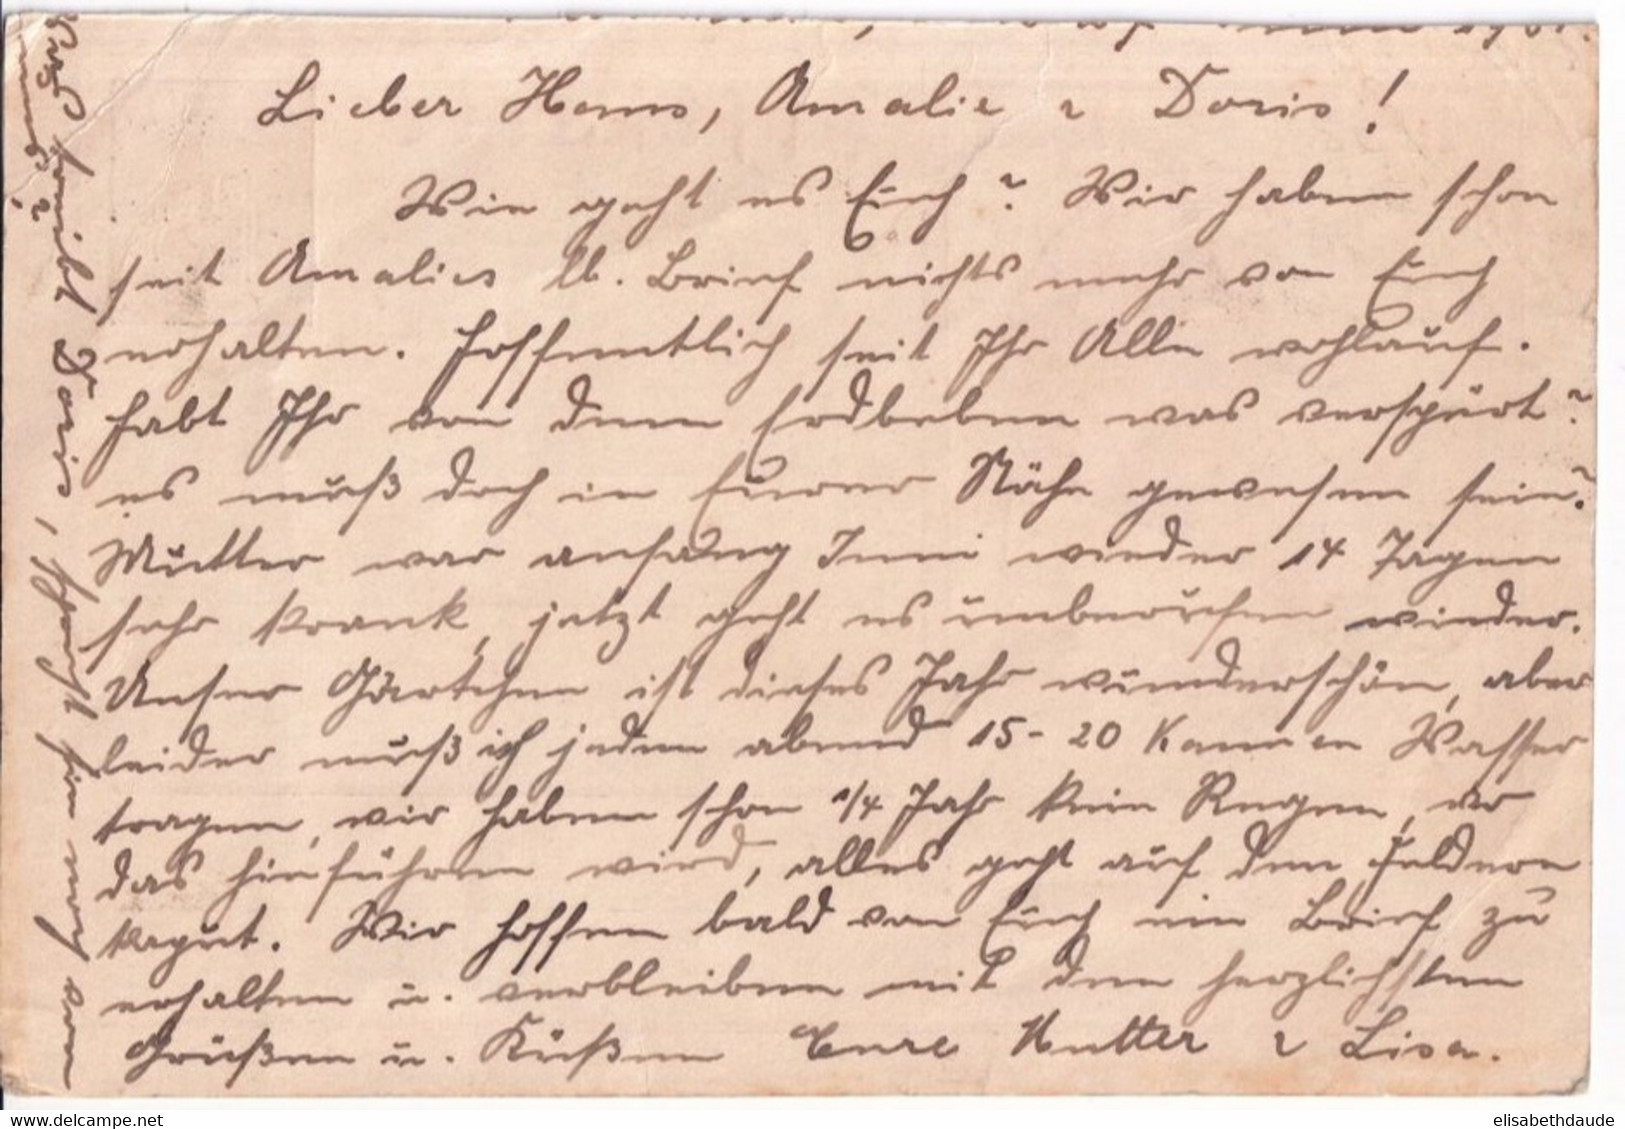 Lieber Hans, Amalie u Doris!
Wie geht es Euch? Wir haben schon
seit Amalies lb. Brief nichts mehr von Euch
erhalten. Hoffentlich seit Ihr Alle wohlauf.
Habt Ihr von dem Erdbeben was verspürt?
es muß doch in Eurer Nähe gewesen sein?
Mutter war anfang Juni wieder 14 Tagen
sehr krank, jetzt geht es wieder.
Unser Gärtchen ist dieses Jahr wunderschön, aber
leider muß ich jeden abend 15-20 Kannen Wasser
tragen, wir haben schon 1/4 Jahr kein Regen, wo
das hinführen wird, alles geht auf den Feldern
kaput. Wir hoffen bald von Euch ein Brief zu
erhalten u. verbleiben mit den herzlichsten
Grüßen u. Küßen Eure Mutter u Lisa.
Was schreibt Doris, spricht sie noch von
uns?
elisabethdaude
www.delcampe.net